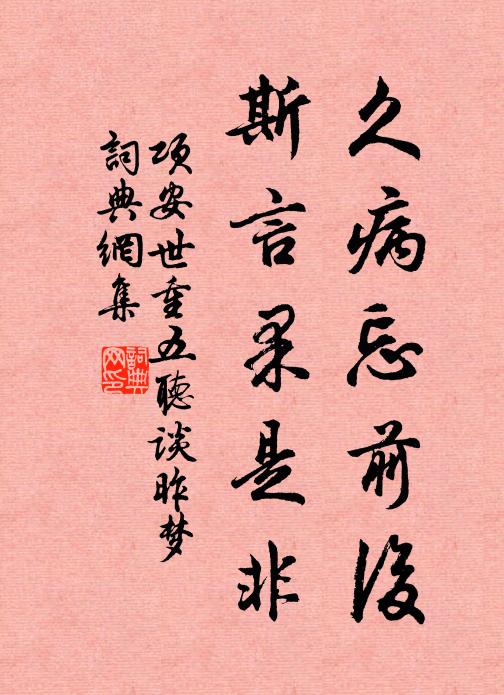 久病忘前後
斯言果是非
项安世重五聽谈昨梦
詞典網集
詞典
网印